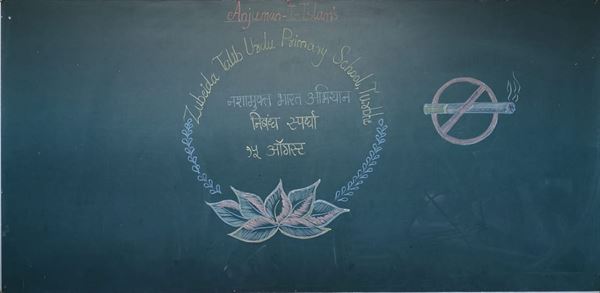 Anjuman-I-Islam's
Zubeida Talib Urdu Primary School, Turbhe
नशामुक्त भारत अभियान
निबंध स्पर्धा
१५ ऑगस्ट